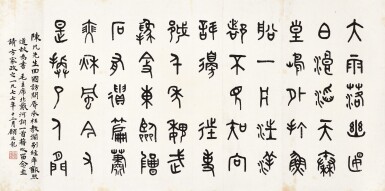 大雨落幽燕
白浪滔天秦
皇島外打魚
船一片汪洋
都不見知向
誰邊往事越
千年魏武揮
鞭東臨碣
石有遺篇蕭
瑟秋風今又
是換了人間
先生回國訪問
毛主席北戴河詞一首
請方家